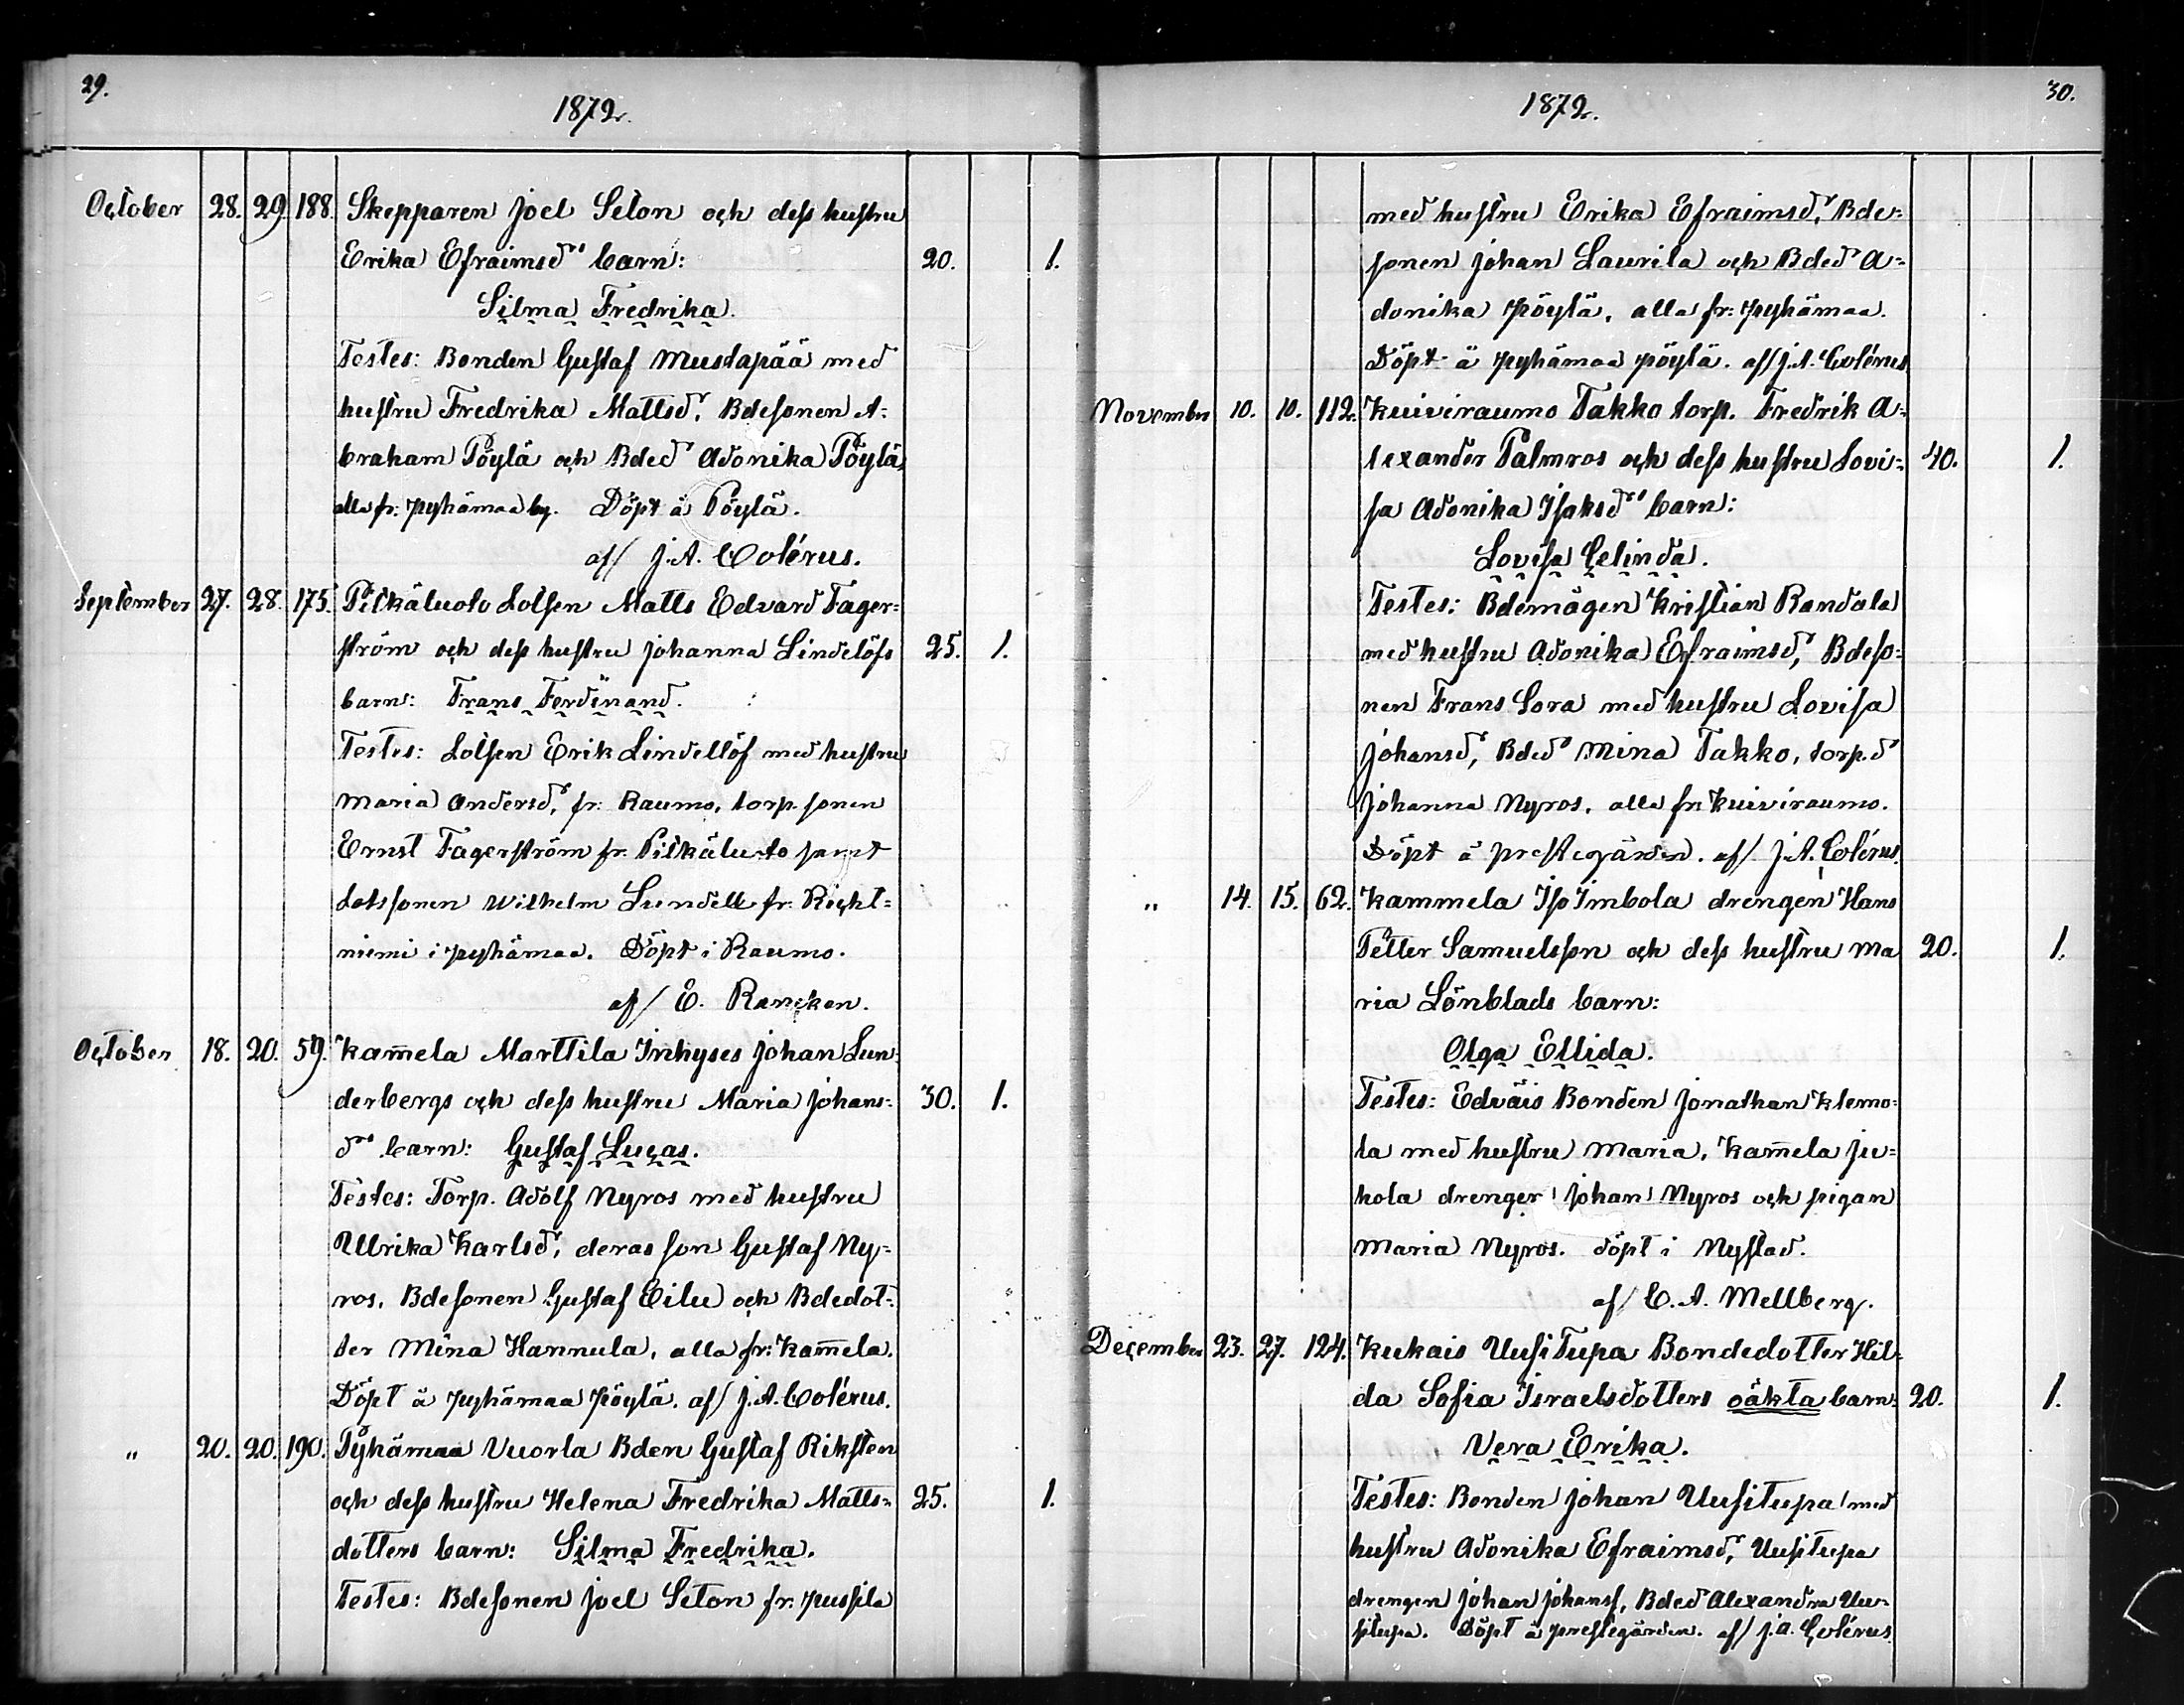 29.
1872.
October 28. 29. 188. Skepparen Joel Seton och dess hustru
Erika Efraimsdrs barn: 20. 1.
Silma Fredrika.
Testes: Bonden Gustaf Mustapää med
hustru Fredrika Mattsdr, Bdesonen A-
braham Pöylä och Bdedr Adonika Pöylä,
alla fr: Pyhämaa by. Döpt å Pöylä.
af/ J. A. Colérus.
September 27. 28. 175. Pitkäluoto Lotsen Matts Edvard Fager-
ström och dess hustru Johanna Lindelöfs 25. 1.
barn: Frans Ferdinand.
Testes: Lotsen Erik Lindellöf med hustru
Maria Andersdr, fr: Raumo, torp. sonen
Ernst Fagerström fr. Pitkäluoto samt
Lotssonen Wilhelm Lundell fr. Richt-
niemi i Pyhämaa. Döpt i Raumo.
af/ E. Rancken.
October 18. 20. 59. Kam̄ela Marttila Inhyses Johan Lun-
derbergs och dess hustru Maria Johans- 30. 1.
drs barn: Gustaf Lucas.
Testes: Torp. Adolf Nyros med hustru
Ulrika Karlsdr, deras son Gustaf Ny-
ros, Bdesonen Gustaf Eilu och Bdedot-
ter Mina Hannula, alla fr: Kam̄ela.
Döpt å Pyhämaa Pöylä. af/ J. A. Colérus.
" 20. 20. 190. Pyhämaa Vuorla Bden Gustaf Riksten
och dess hustru Helena Fredrika Matts- 25. 1.
dotters barn: Silma Fredrika.
Testes: Bdesonen Joel Seton fr: Pussila
30.
1872.
med hustru Erika Efraimsdr, Bde-
sonen Johan Laurila och Bdedr A-
donika Pöylä, alla fr: Pyhämaa.
Döpt å Pyhämaa Pöylä. af/ J. A. Colérus
November 10. 10. 112. Kuiviraumo Takko torp. Fredrik A-
lexander Palmros och dess hustru Lovi- 40. 1.
sa Adonika Isaksdrs barn:
Lovisa Celinda.
Testes: Bdemågen Kristian Randala
med hustru Adonika Efraimsdr, Bdeso-
nen Frans Sora med hustru Lovisa
Johansdr, Bdedr Mina Takko, torp. dr
Johanna Nyros, alla fr: Kuiviraumo.
Döpt å prestegården. af/ J. A. Colérus.
" 14. 15. 62. Kammela Iso Imbola drengen Hans
Petter Samuelsson och dess hustru Ma 20. 1.
ria Lönblads barn:
Olga Ellida.
Testes: Edväis Bonden Jonathan Klemo-
la med hustru Maria, Kam̄ela Ju-
hola drengen Johan Nyros och pigan
Maria Nyros. döpt i Nystad.
af/ C. A. Mellberg.
December 23. 27. 124. Kukais UusiTupa Bondedotter Hil-
da Sofia Israelsdotters oäkta barn: 20. 1.
Vera Erika.
Testes: Bonden Johan Uusitupa med
hustru Adonika Efraimsdr, Uusitupa
drengen Johan Johanss, Bdedr Alexandra Uu-
situpa. Döpt å prestegården. af/ J. A. Colérus.